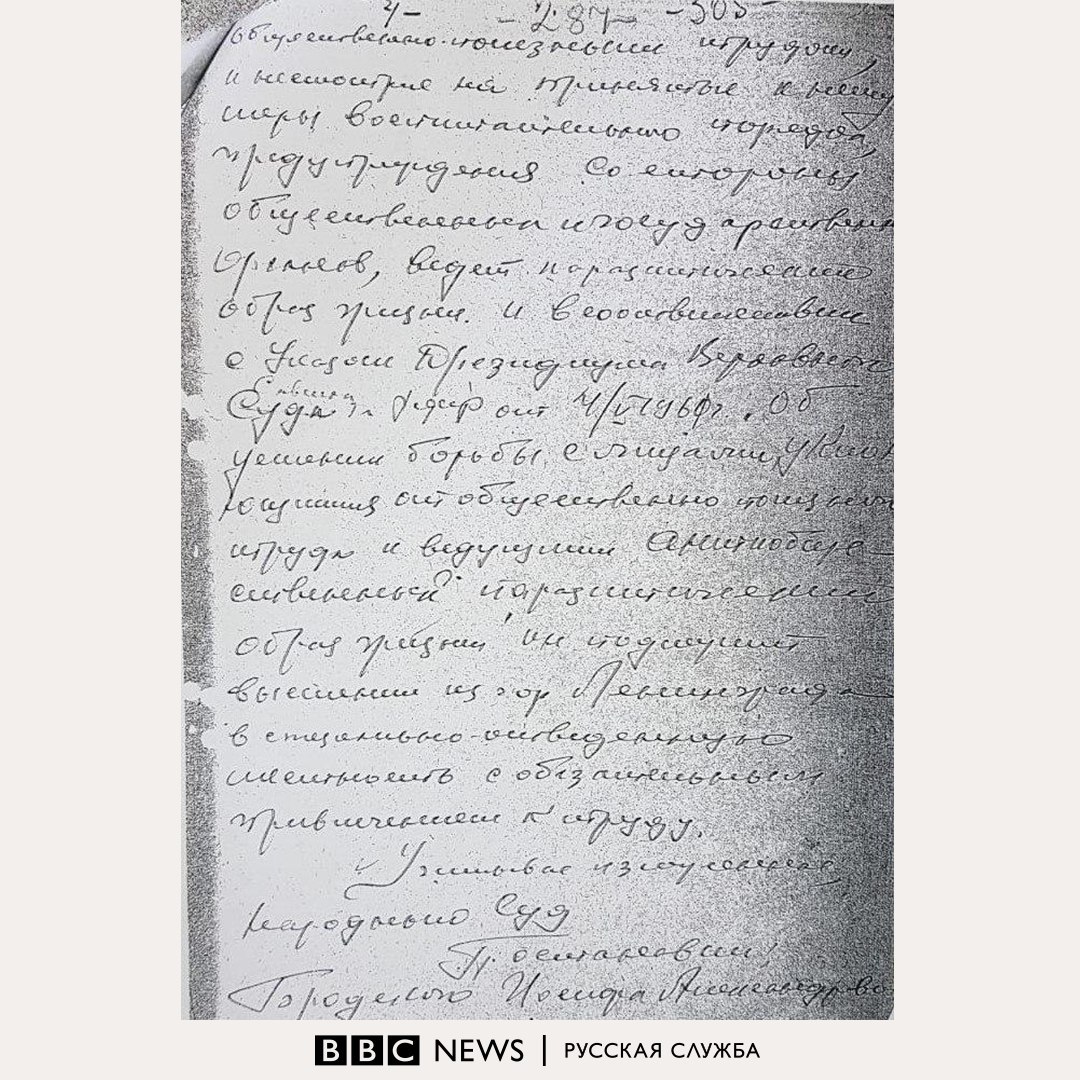 - 287 - - 303 -
общественно-полезным трудом,
и несмотря на принятые к нему
меры воспитательного порядка,
предупреждения со стороны
общественных и государственн
органов, ведет паразитический
образ жизни. И в соответствии
с Указом Президиума Верховного
Суда РСФСР от 4/V 1961г. Об
усилении борьбы с лицами, уклон
яющимися от общественно полезного
труда и ведущими антиобще
ственный паразитический
образ жизни он подлежит
выселению из гор Ленинграда
в специально-отведенную
местность с обязательным
привлечением к труду.
Учитывая изложенное,
народный Суд
Постановил:
Бродского Иосифа Александрови
BBC NEWS | РУССКАЯ СЛУЖБА